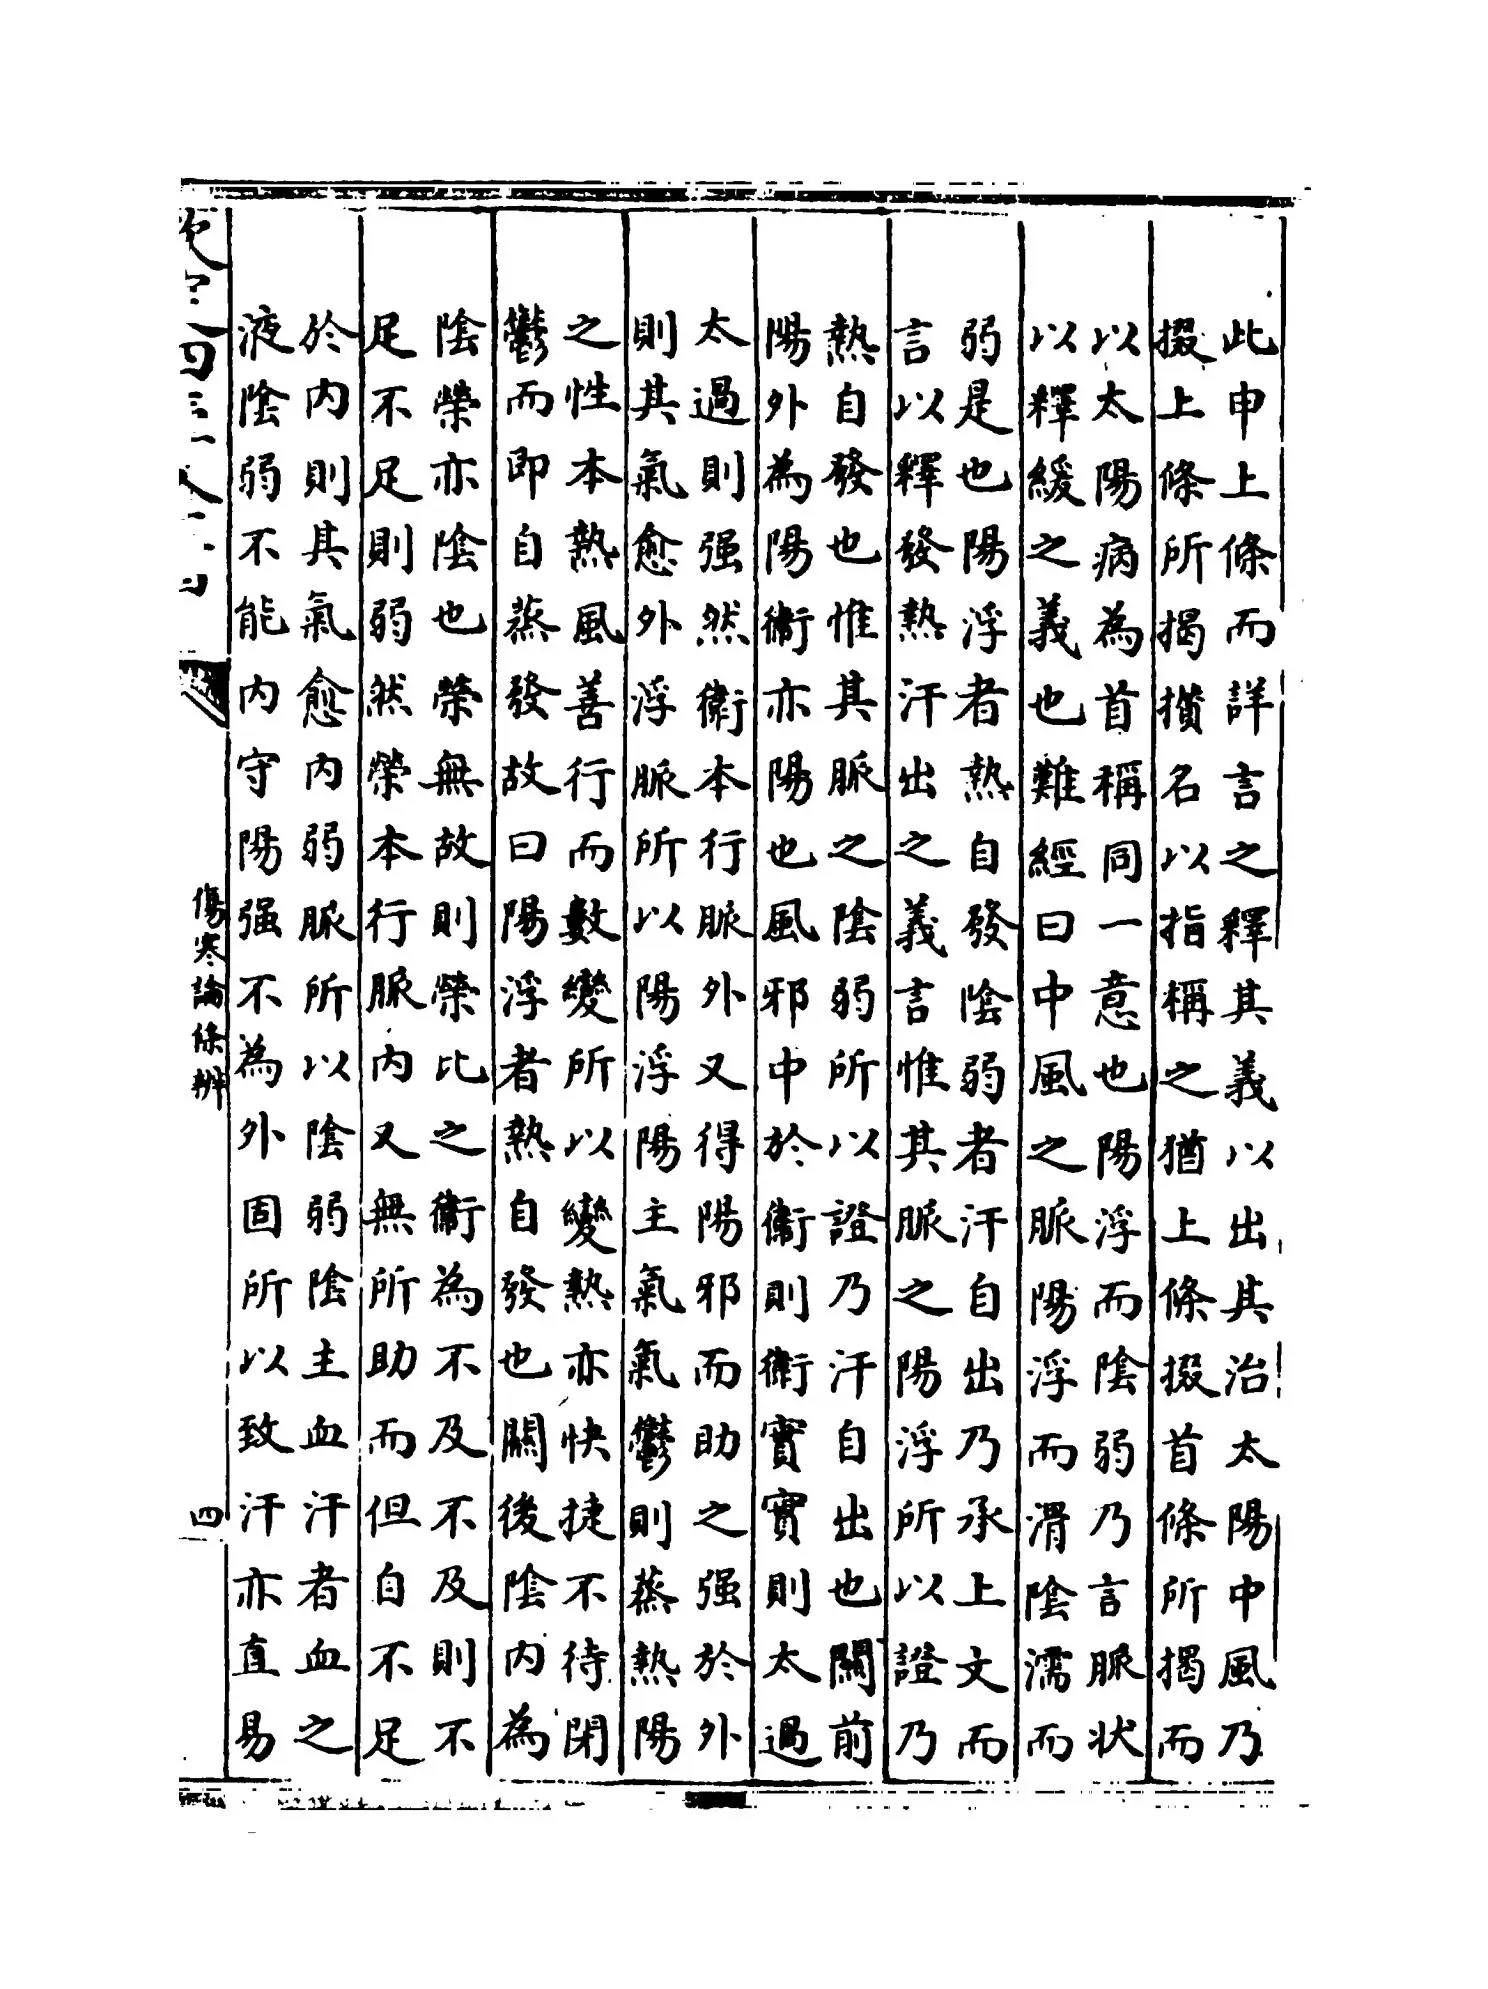 此申上條而詳言之釋其義以出其治太陽中風乃
掇上條所揭攢名以指稱之猶上條掇首條所揭而
以太陽病為首稱同一意也陽浮而陰弱乃言脈状
以釋緩之義也難經曰中風之脈陽浮而滑陰濡而
弱是也陽浮者熱自發陰弱者汗自出乃承上文而
言以釋發熱汗出之義言惟其脈之陽浮所以證乃
熱自發也惟其脈之陰弱所以證乃汗自出也關前
陽外為陽衛亦陽也風邪中於衛則衛實實則太過
太過則强然衛本行脈外又得陽邪而助之强於外
則其氣愈外浮脈所以陽浮陽主氣氣鬱則蒸熱陽
之性本熱風善行而數變所以變熱亦快捷不待閉
鬱而即自蒸發故曰陽浮者熱自發也關後陰內為
陰榮亦陰也榮無故則榮比之衛為不及不及則不
足不足則弱然榮本行脈內又無所助而但自不足
於內則其氣愈內弱脈所以陰弱陰主血汗者血之
液陰弱不能內守陽强不為外固所以致汗亦直易
傷寒論條辨
四